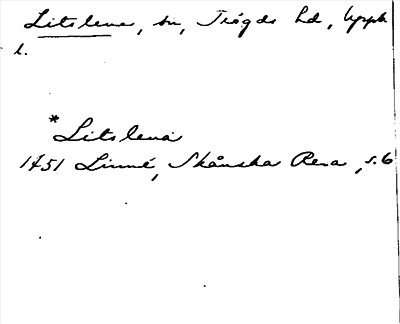 Litslena, sn, Trögds hd, Uppl
l.
*Litslena
1751 Linné, Skånska Resa, s. 6